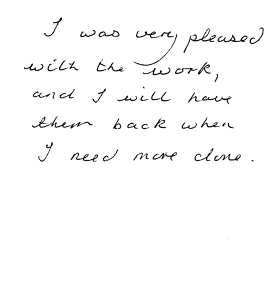 I was very pleased
with the work,
and I will have
them back when
I need more done.